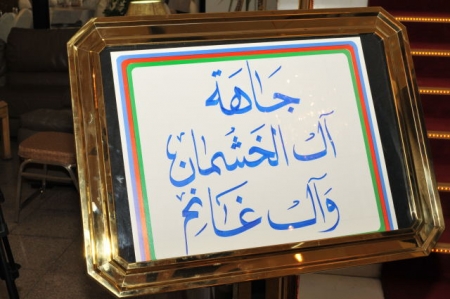 جَاهَة
آل الخَشْمان
وَآل غَانِم